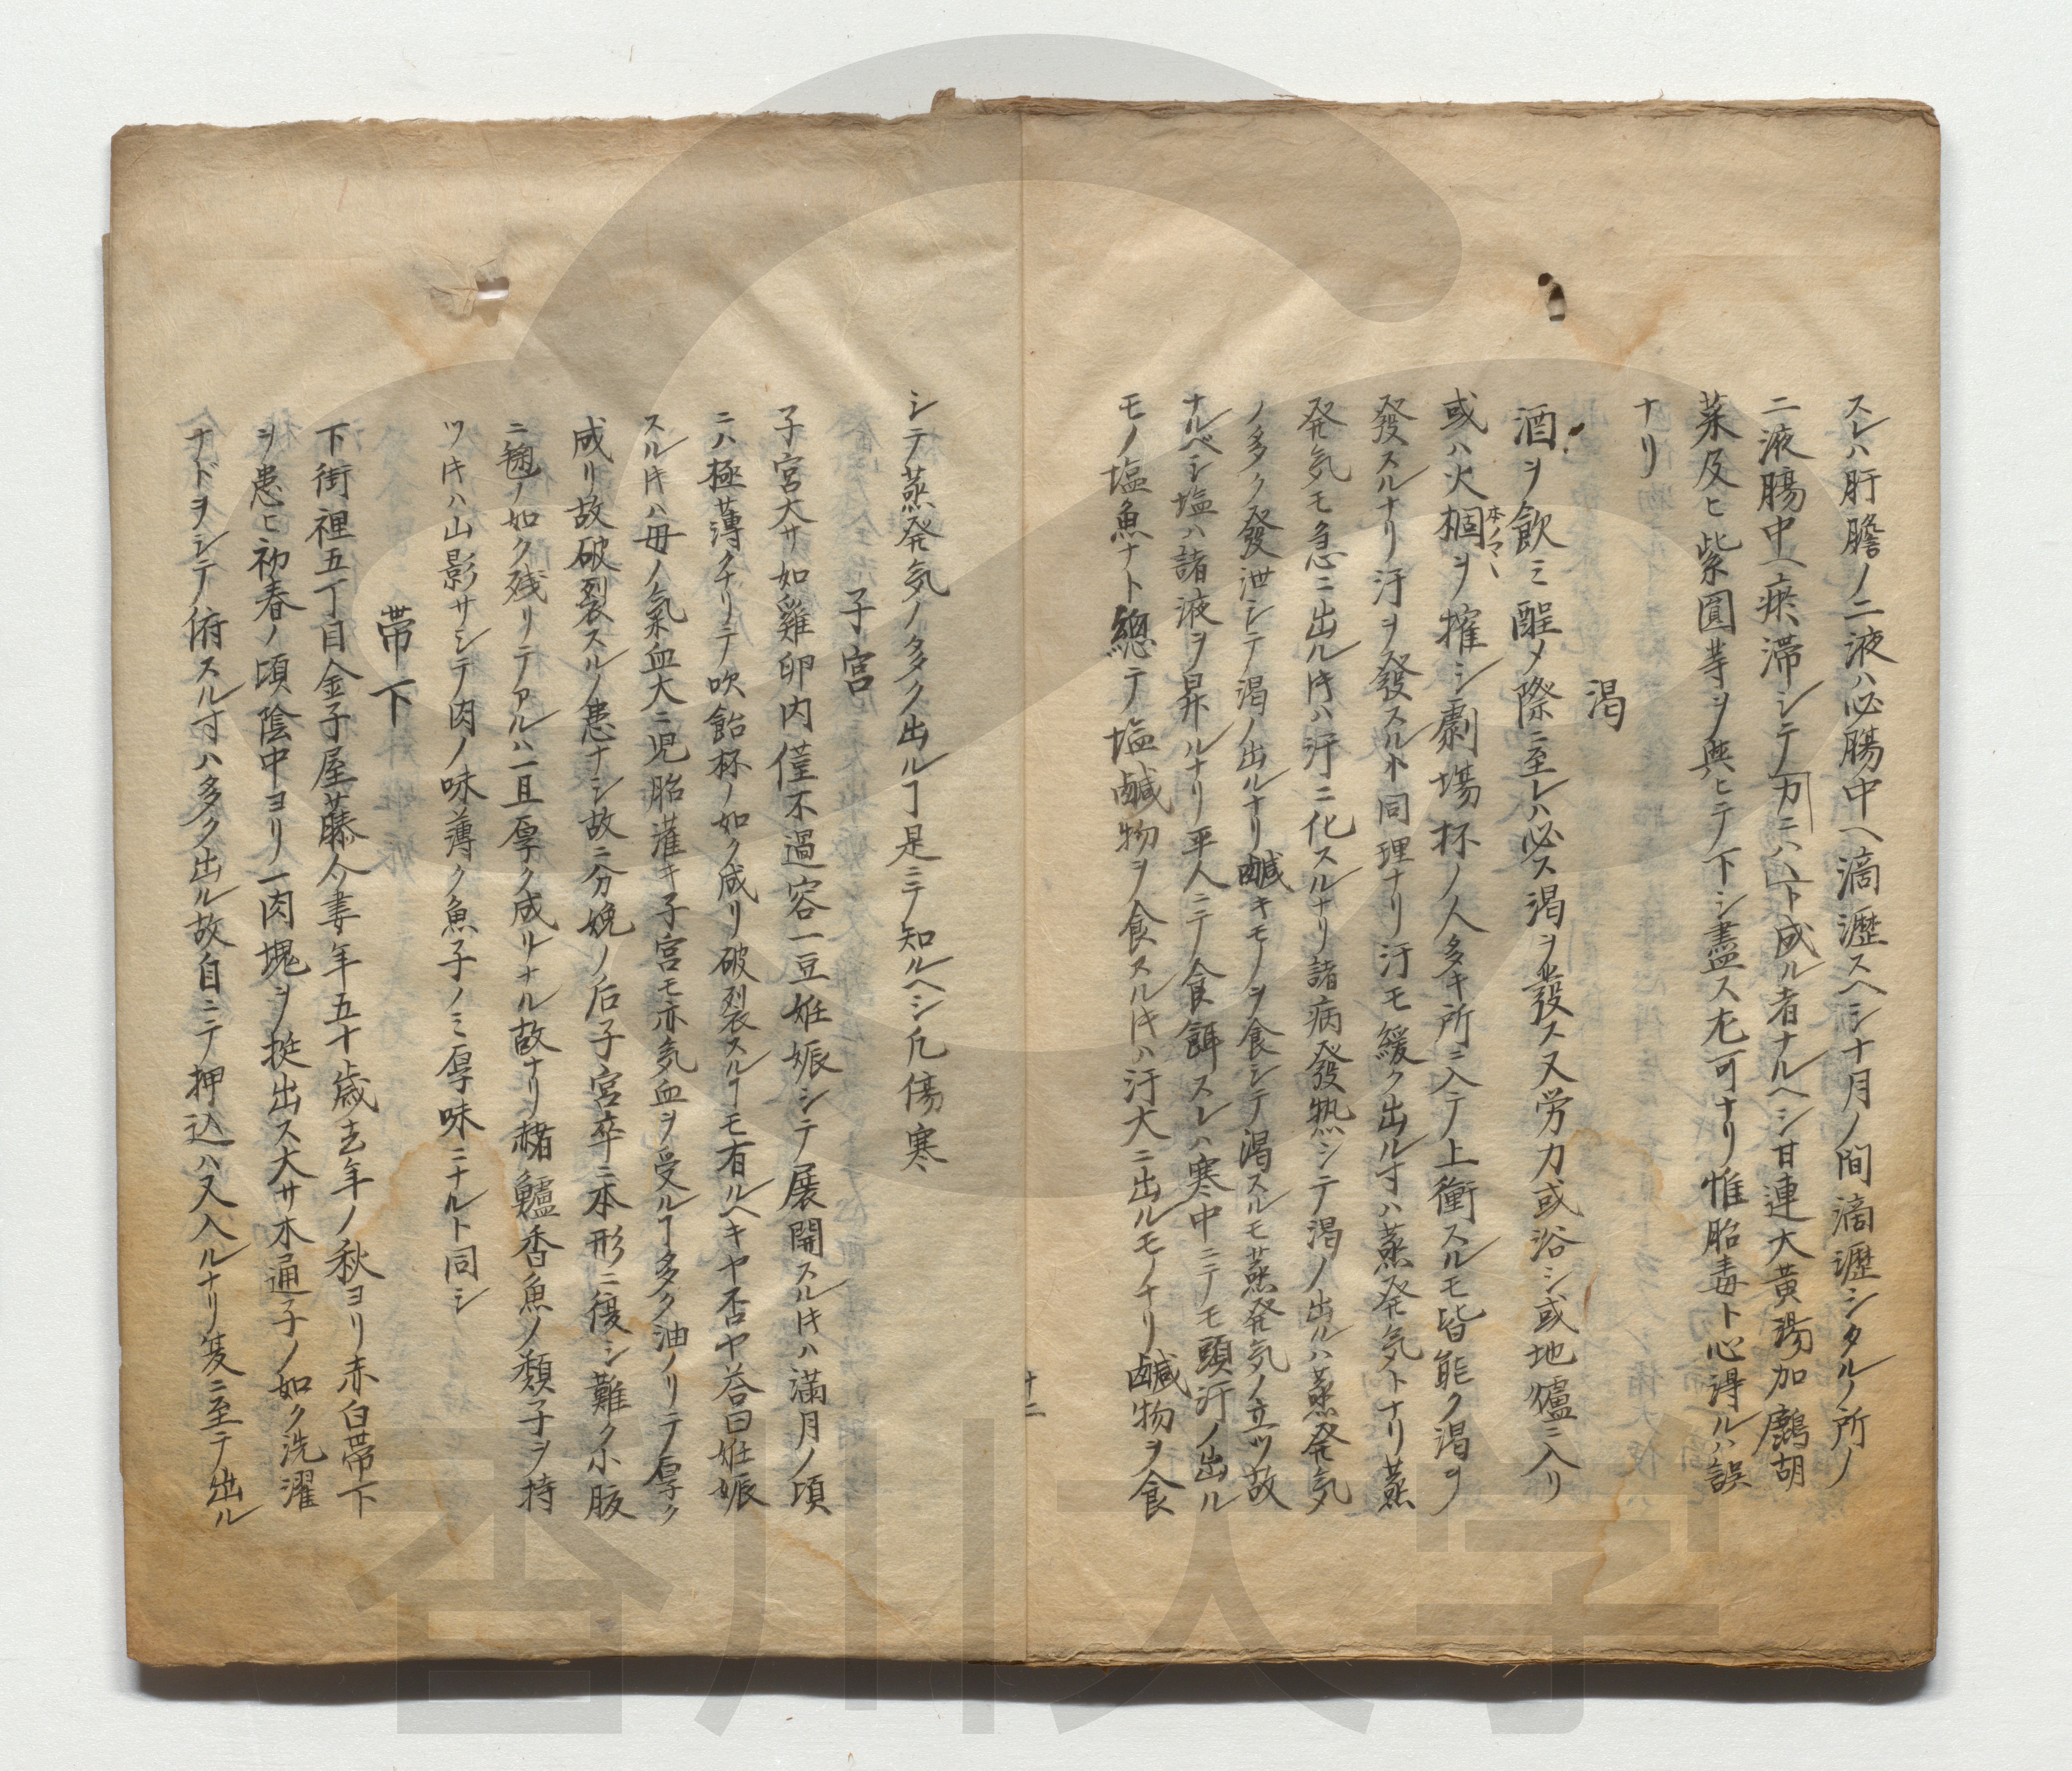 スレハ肝膽ノ二液ハ必腸中ヘ滴瀝スヘシ十月ノ間滴瀝シタル所ノ
二液腸中ヘ瘀滞シテカニハヽト成ル者ナルヘシ甘連大黄湯加鷓胡
菜及ヒ紫圓等ヲ與ヒテ下シ盡ス尤可ナリ惟胎毒ト心得ルハ誤
ナリ
渇
酒ヲ飲ミ酲メ際ニ至レハ必ス渇ヲ發ス又労力或浴シ或地爐ニ入リ
或ハ火棝ヲ擁シ劇場杯ノ人多キ所ニ入テ上衝スルモ皆能ク渇ヲ
本ノマヽ
發スルナリ汗ヲ發スルト同理ナリ汗モ緩ク出ル寸ハ蒸発気トナリ蒸
発気モ急ニ出ル㐧ハ汗ニ化スルナリ諸病發熱シテ渇ノ出ルハ蒸発気
ノ多ク發泄シテ渇ノ出ルナリ鹹キモノヲ食シテ渇スルモ蒸発気ノ立ツ故
ナルベシ塩ハ諸液ヲ昇ルナリ平人ニテ食餌スレハ寒中ニテモ頭汗ノ出ル
モノ塩魚ナト總テ塩鹹物ヲ食スル㐧ハ汗大ニ出ルモノナリ鹹物ヲ食
十二
シテ蒸発気ノ多ク出ルヿ是ニテ知ルヘシ凡傷寒
子宮
子宮大サ如雞卵内僅不過容一豆姙娠シテ展開スル㐧ハ滿月ノ頃
ニハ極薄クナリテ吹飴杯ノ如ク成リ破裂スルヿモ有ルヘキヤ否ヤ荅曰姙娠
スル㐧ハ母ノ氣血大ニ児胎灌キ子宮モ亦気血ヲ受ルヿ多ク油ノリテ厚ク
成リ故破裂スルノ患ナシ故ニ分娩ノ后子宮卒ニ本形ニ復シ難ク小腹
ニ毱ノ如ク残リテアルハ一旦厚ク成リナル故ナリ楮鱸香魚ノ類子ヲ持
ツ㐧ハ山影サシテ肉ノ味薄ク魚子ノミ厚味ニナルト同シ
帯下
下街裡五丁目金子屋藤介妻年五十歳去年ノ秋ヨリ赤白帯下
ヲ患ヒ初春ノ頃陰中ヨリ一肉塊ヲ挺出ス大サ木通子ノ如ク洗濯
ナドヲシテ俯スル寸ハ多ク出ル故自ニテ押込ハ又入ルナリ夏ニ至テ出ル